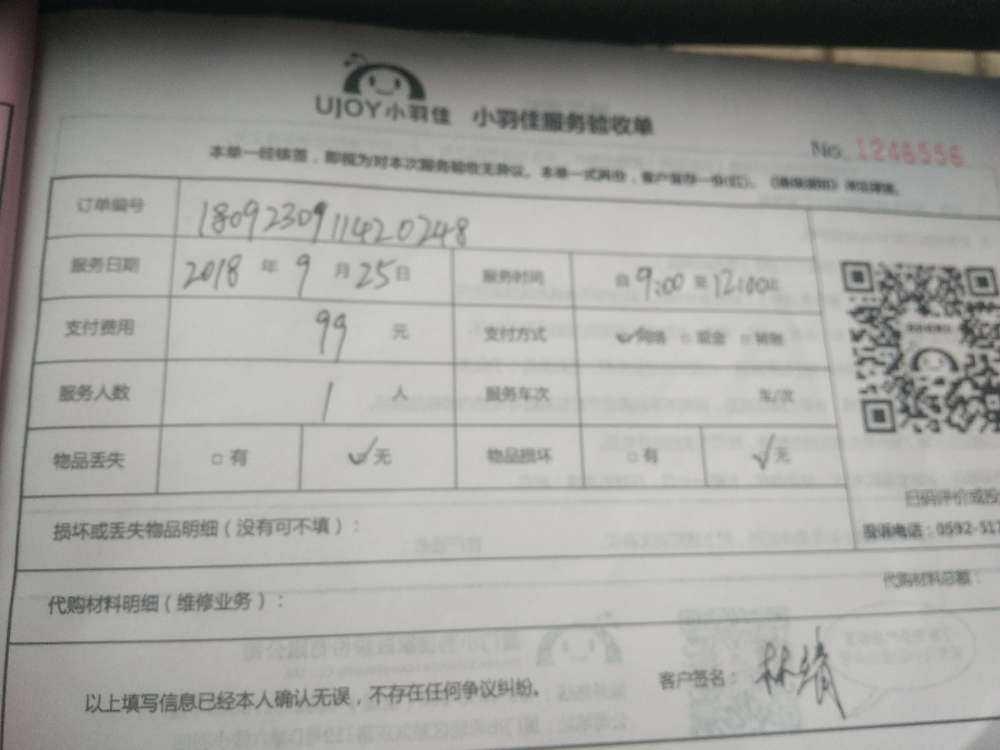 UJOY小羽佳 小羽佳服务验收单
No. 1246556
本单一经核签，即视为对本次服务验收无异议。本单一式两份，客户留存一份(红)。
订单编号 1809230911420248
服务日期 2018 年 9 月 25 日 服务时间 自 9:00 至 12:00止
支付费用 99 元 支付方式 ✓网络 □现金 □转账
服务人数 1 人 服务车次 车/次
物品丢失 □有 ✓无 物品损坏 □有 ✓无
扫码评价或投
损坏或丢失物品明细（没有可不填）：
投诉电话：0592-517
代购材料明细（维修业务）： 代购材料总额：
以上填写信息已经本人确认无误，不存在任何争议纠纷。 客户签名： 林靖